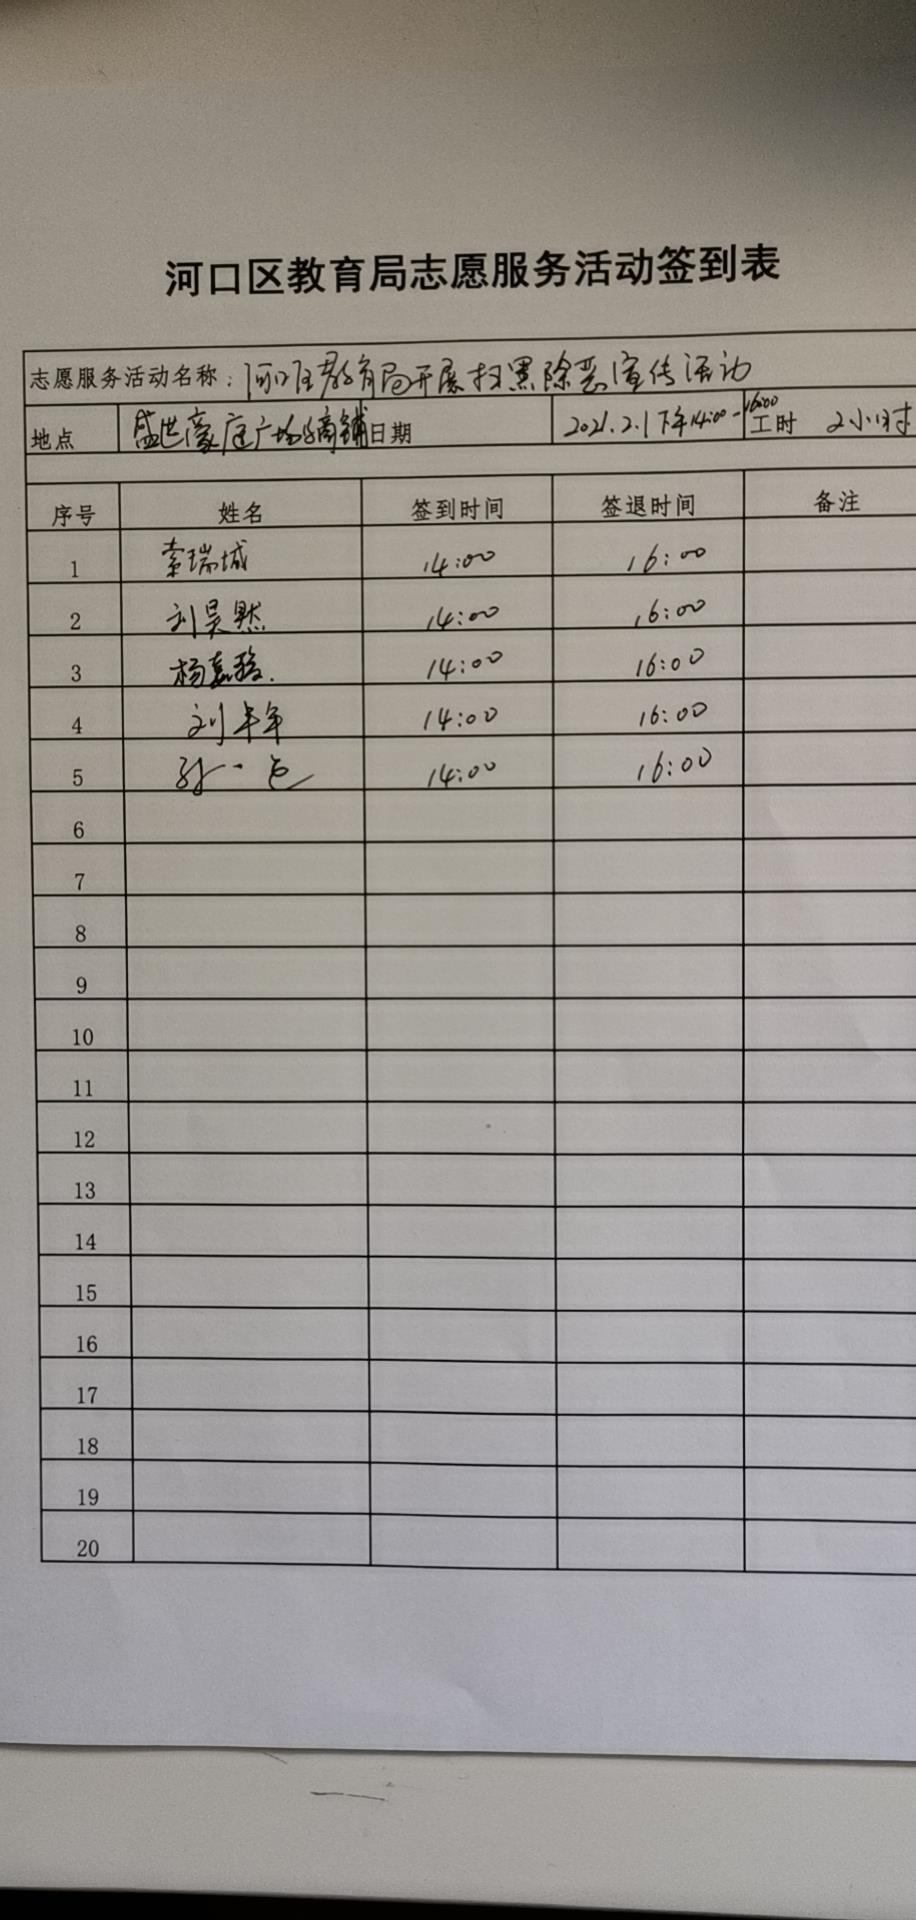 河口区教育局志愿服务活动签到表
志愿服务活动名称：河口区教育局开展扫黑除恶宣传活动
地点 盛世豪庭广场 商铺 日期 2021.2.1下午14:00-16:00 工时 2小时
序号 姓名 签到时间 签退时间 备注
1 索瑞城 14:00 16:00
2 刘昊然 14:00 16:00
3 杨嘉 14:00 16:00
4 刘 14:00 16:00
5 14:00 16:00
6
7
8
9
10
11
12
13
14
15
16
17
18
19
20